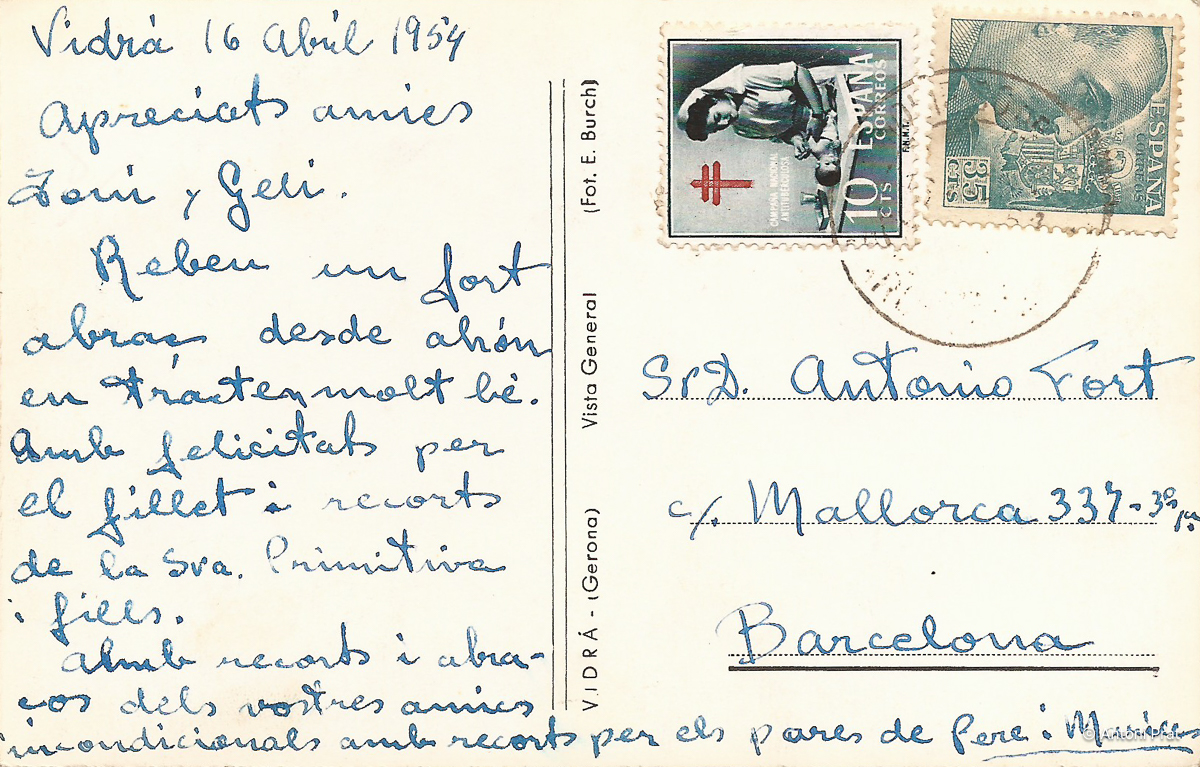 Vidrá 16 Abril 1954
Apreciats amics
Toni y Geli.
Rebeu un fort
abraç desde ahón
en tracten molt bé.
Amb felicitats per
el fillet i recorts
de la Sra. Primitiva
i fills.
Amb recorts i abra-
ços dels vostres amics
incondicionals amb recorts per els pares de Pere i Maria
VIDRÁ - (Gerona) Vista General (Fot. E. Burch)
ESPAÑA
CORREOS
10 CTS
CAMPAÑA NACIONAL
ANTITUBERCULOSA
F.N.M.T.
ESPAÑA
CORREOS
35
CTS
Sr D. Antonio Fort
c/. Mallorca 337-3º
Barcelona
© Antoni Prat